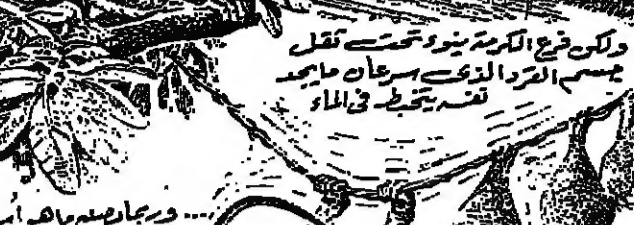 ولكن فرع الكرمة ينوء تحت ثقل
جسم القرد الذى سرعان ما يجد
نفسه يتخبط فى الماء
... وربما